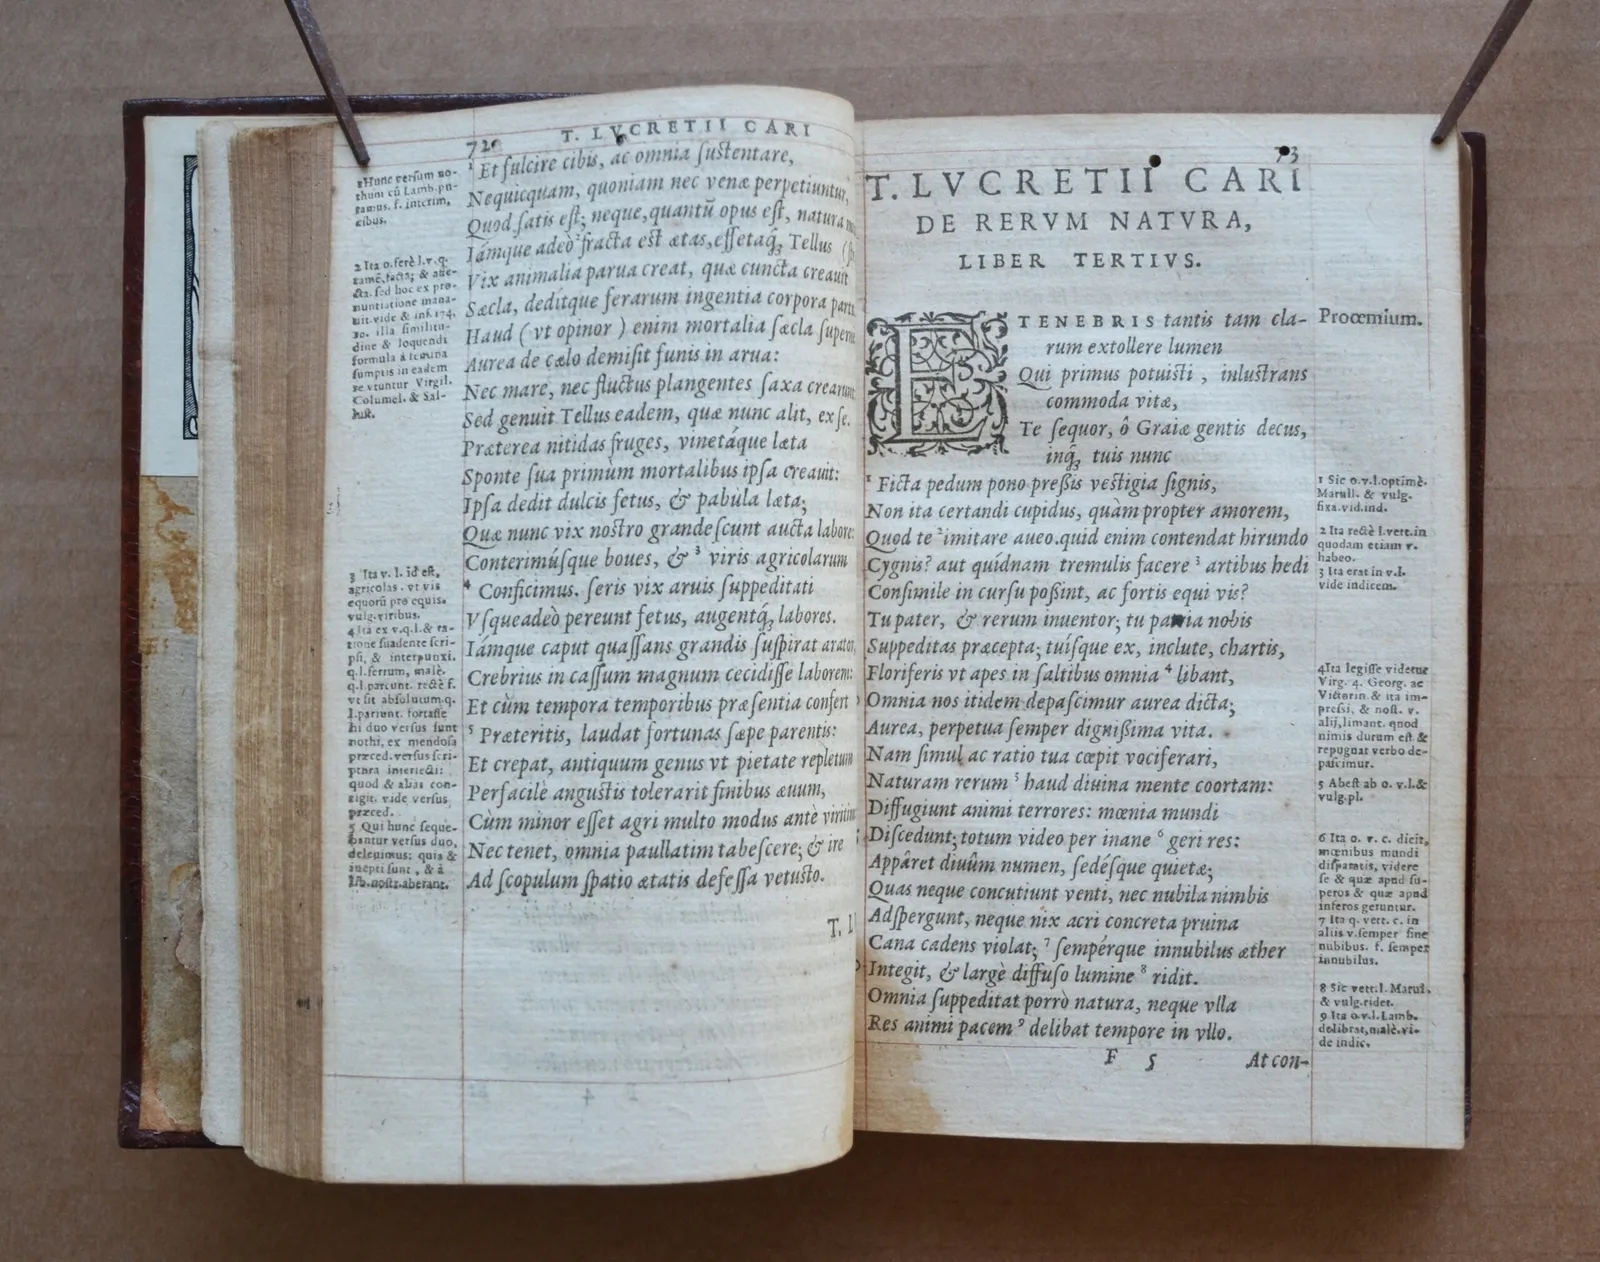 72
T. LVCRETII CARI
1 Et fulcire cibis, ac omnia sustentare,
Nequicquam, quoniam nec venæ perpetiuntur,
Quod satis est; neque, quantū opus est, natura
Iámque adeò 2 fracta est ætas, effetaq́; Tellus
Vix animalia parua creat, quæ cuncta creauit
Sæcla, dedítque ferarum ingentia corpora partu
Haud (vt opinor) enim mortalia sæcla superne
Aurea de cælo demisit funis in arua:
Nec mare, nec fluctus plangentes saxa crearunt
Sed genuit Tellus eadem, quæ nunc alit, ex se.
Præterea nitidas fruges, vinetáque læta
Sponte sua primùm mortalibus ipsa creauit:
Ipsa dedit dulcis fetus, & pabula læta;
Quæ nunc vix nostro grandescunt aucta labore:
Conterimúsque boues, & 3 viris agricolarum
4 Conficimus. seris vix aruis suppeditati
Vsqueadeò pereunt fetus, augentq́; labores.
Iámque caput quassans grandis suspirat arator,
Crebrius in cassum magnum cecidisse laborem:
Et cùm tempora temporibus præsentia confert
5 Præteritis, laudat fortunas sæpe parentis:
Et crepat, antiquum genus vt pietate repletum
Perfacilè angustis tolerarit finibus æuum,
Cùm minor esset agri multo modus antè viritim
Nec tenet, omnia paullatim tabescere; & ire
Ad scopulum spatio ætatis defessa vetusto.
T. L
1 Hunc versum nothum
cū Lamb. putamus.
f. interim,
cibus.
2 Ita o. ferè l. v. q.
tamē, facta; &
sed hoc ex pronuntiatione
manauit.
vide & inf. 174.
10. illa similitudine
& loquendi
formula à femina
sumptis in eadem
re vtuntur Virgil.
Columel. & Sallust.
3 Ita v. l. id est,
agricolas. vt vis
equorū pro equis.
vulg. viribus.
4 Ita ex v. q. l. & ratione
suadente scripsi,
& interpunxi.
q. l. ferrum, malè.
q. l. pariunt. rectè f.
vt sit absolutum. q.
l. pariunt. fortasse
hi duo versus sunt
nothi, ex mendosa
præced. versus scriptura
interiecti:
quod & alias contigit.
vide versus
præced.
5 Qui hunc sequebantur
versus duo,
deleuimus; quia &
inepti sunt, & à
lib. nostr. aberant.
73
T. LVCRETII CARI
DE RERVM NATVRA,
LIBER TERTIVS.
E TENEBRIS tantis tam cla-
rum extollere lumen
Qui primus potuisti, inlustrans
commoda vitæ,
Te sequor, ô Graiæ gentis decus,
inq́; tuis nunc
1 Ficta pedum pono pressis vestigia signis,
Non ita certandi cupidus, quàm propter amorem,
Quod te 2 imitare aueo. quid enim contendat hirundo
Cygnis? aut quídnam tremulis facere 3 artibus hedi
Consimile in cursu possint, ac fortis equi vis?
Tu pater, & rerum inuentor; tu patria nobis
Suppeditas præcepta; tuísque ex, inclute, chartis,
Floriferis vt apes in saltibus omnia 4 libant,
Omnia nos itidem depascimur aurea dicta;
Aurea, perpetua semper dignissima vita.
Nam simul ac ratio tua cœpit vociferari,
Naturam rerum 5 haud diuina mente coortam:
Diffugiunt animi terrores: mœnia mundi
Discedunt; totum video per inane 6 geri res:
Appâret diuûm numen, sedésque quietæ;
Quas neque concutiunt venti, nec nubila nimbis
Adspergunt, neque nix acri concreta pruina
Cana cadens violat; 7 sempérque innubilus æther
Integit, & largè diffuso lumine 8 ridit.
Omnia suppeditat porrò natura, neque vlla
Res animi pacem 9 delibat tempore in vllo.
F 5 At con-
Proœmium.
1 Sic o. v. l. optimè.
Marull. & vulg.
fixa. vid. ind.
2 Ita rectè l. vett. in
quodam etiam r.
habeo.
3 Ita erat in v. l.
vide indicem.
4 Ita legisse videtur
Virg. 4. Georg. ac
Victorin. & ita impressi,
& nost. v.
alij, limant. quod
nimis durum est &
repugnat verbo depascimur.
5 Abest ab o. v. l. &
vulg. pl.
6 Ita o. v. c. dicit,
mœnibus mundi
disparatis, videre
se & quæ apud superos
& quæ apud
inferos geruntur.
7 Ita q. vett. c. in
aliis v. semper sine
nubibus. f. semper
innubilus.
8 Sic vett. l. Marul.
& vulg. ridet.
9 Ita o. v. l. Lamb.
delibrat, malè. vide
indic.